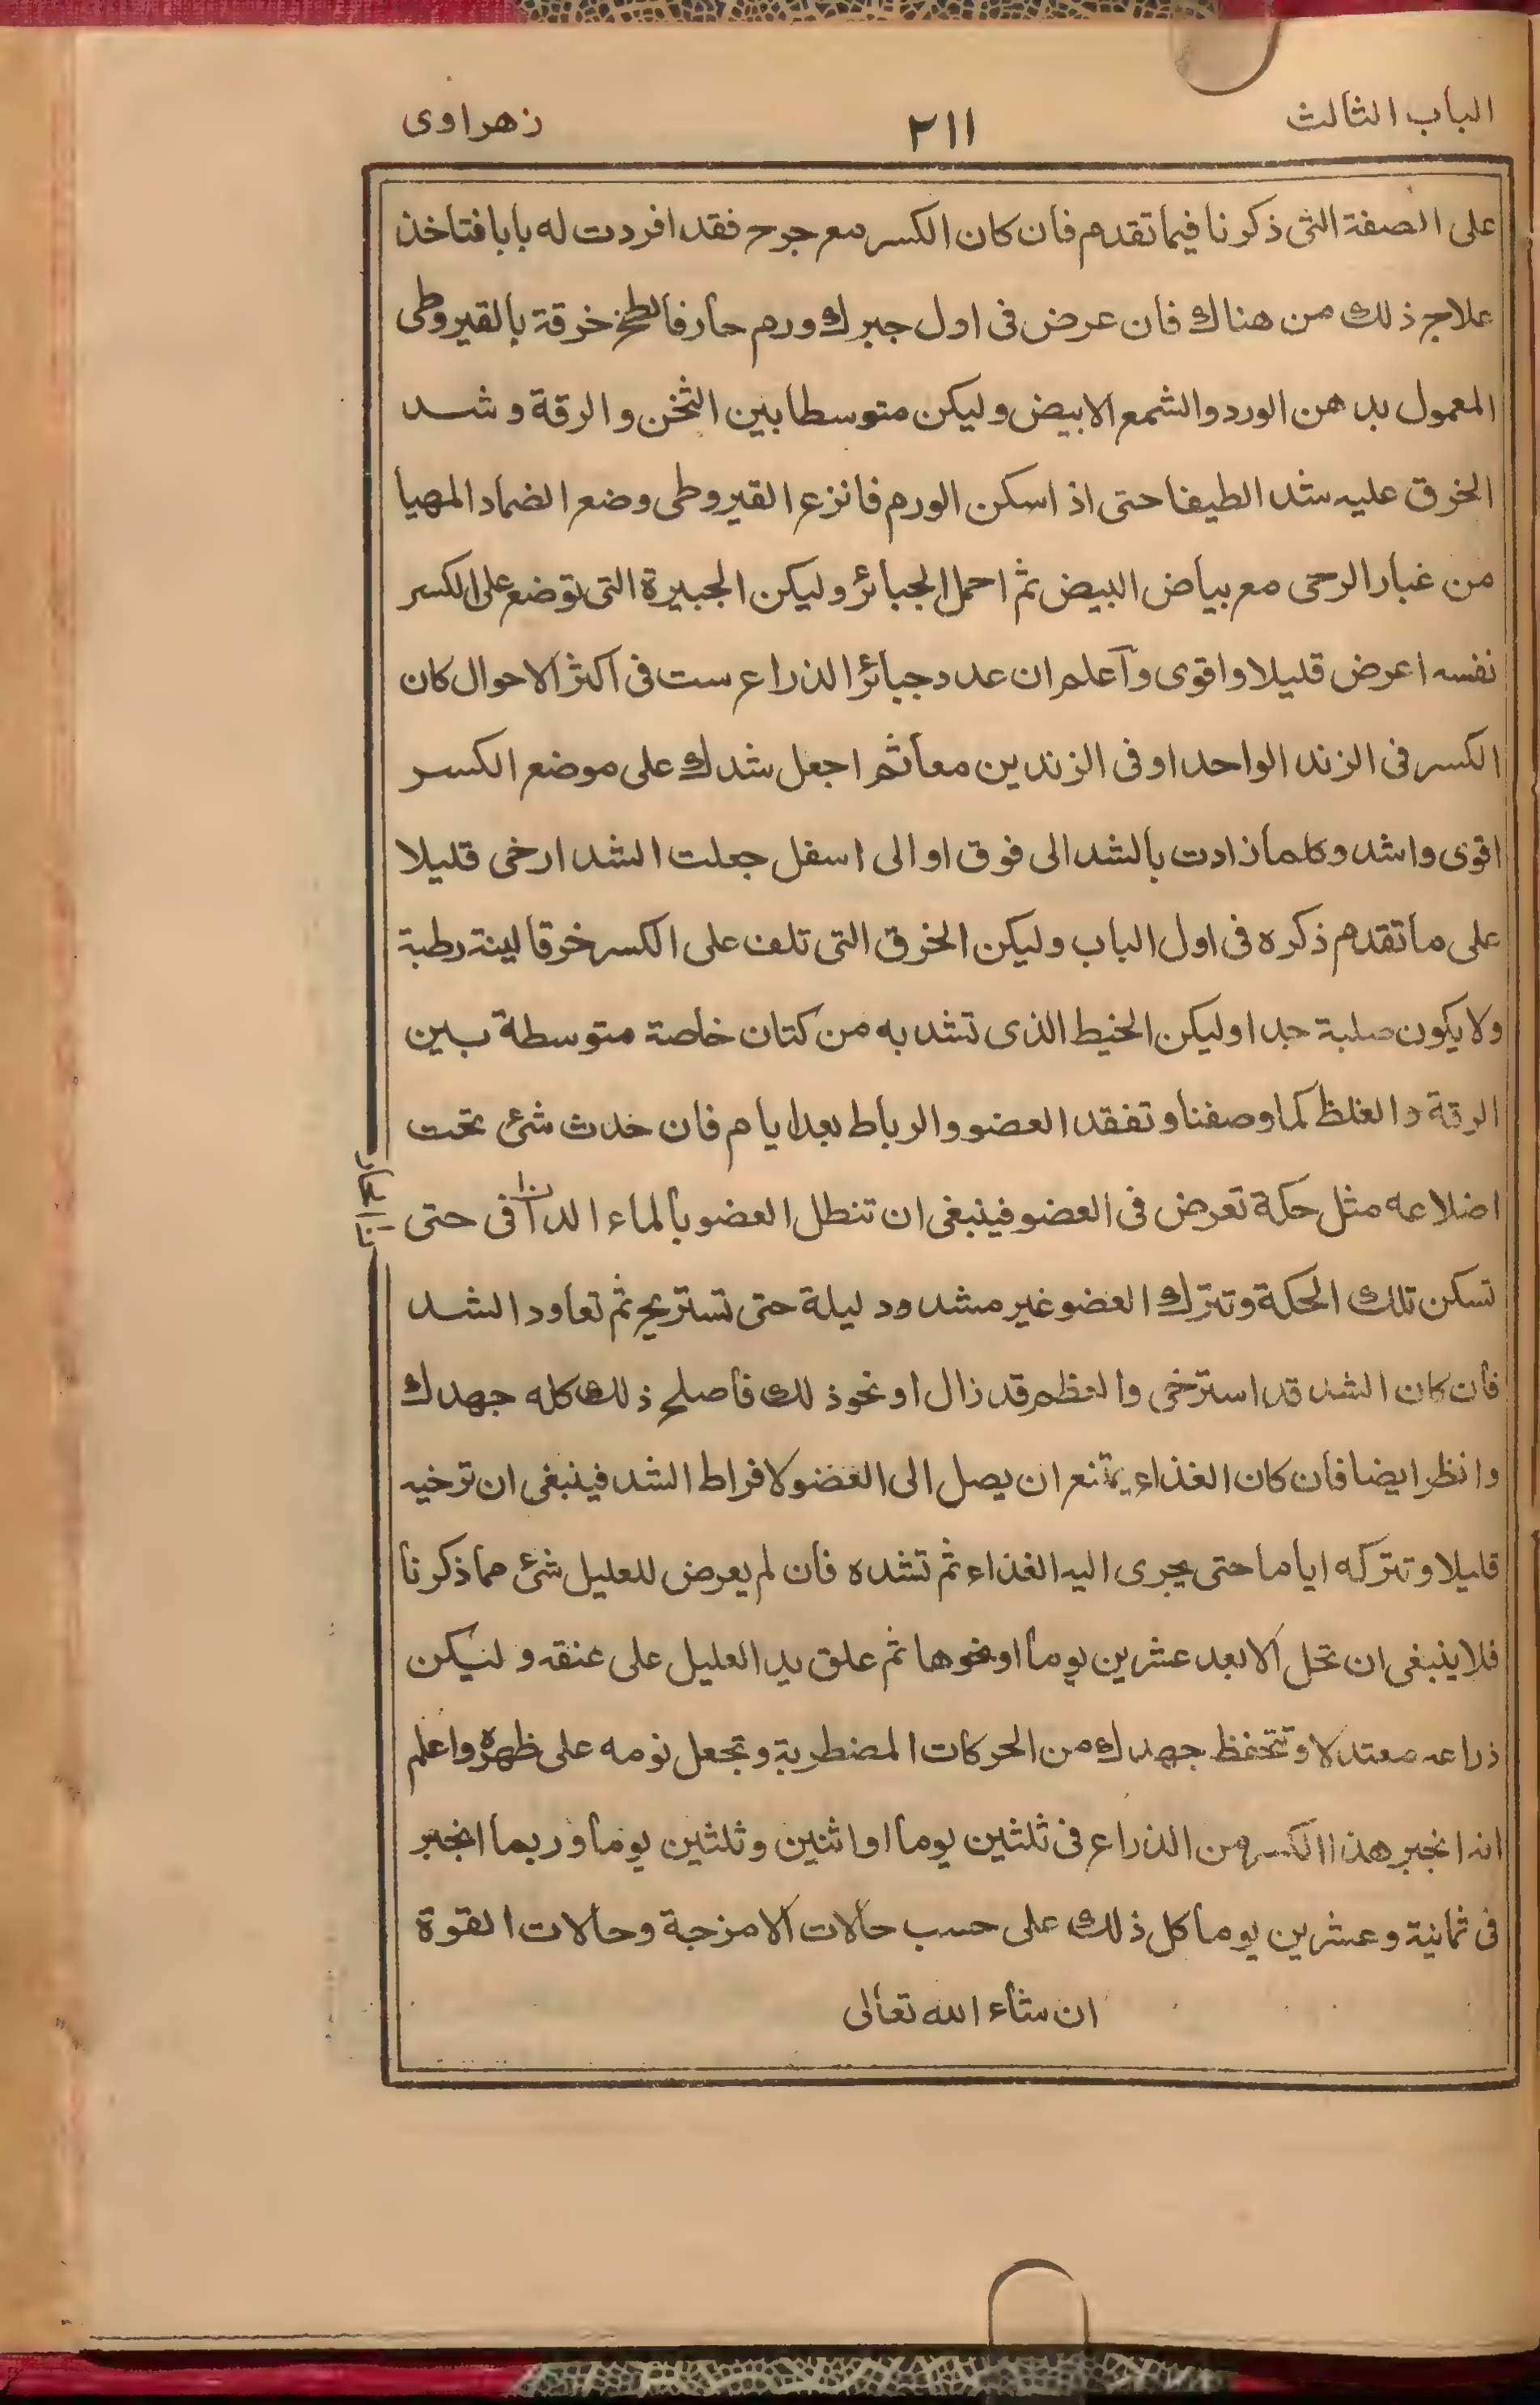 الباب الثالث ٢١١ زهراوى
على الصفة التى ذكرنا فيما تقدم فان كان الكسر مع جرح فقد افردت له بابا فتاخذ
علاج ذلك من هناك فان عرض فى اول جبرك ورم حار فالطخ خرقة بالقيروطى
المعمول بدهن الورد والشمع الابيض وليكن متوسطا بين الثخن والرقة وشد
الخرق عليه شدا لطيفا حتى اذا سكن الورم فانزع القيروطى وضع الضماد المهيا
من غبار الرحى مع بياض البيض ثم احمل الجبائر وليكن الجبيرة التى توضع على الكسر
نفسه اعرض قليلا واقوى وآعلم ان عدد جبائر الذراع ست فى اكثر الاحوال كان
الكسر فى الزند الواحد او فى الزندين معا ثم اجعل شدك على موضع الكسر
اقوى واشد وكلما زادت بالشد الى فوق او الى اسفل جعلت الشد ارخى قليلا
على ما تقدم ذكره فى اول الباب وليكن الخرق التى تلف على الكسر خرقا لينة رطبة
ولا يكون صلبة جدا وليكن الخيط الذى تشد به من كتان خاصة متوسطة بين
الرقة والغلظ كما وصفنا وتفقد العضو والرباط بعد ايام فان خدث شئ تحت
اضلاعه مثل حكة تعرض فى العضو فينبغى ان تنطل العضو بالماء الدافى حتى
تسكن تلك الحكة وتترك العضو غير مشدود ليلة حتى تستريح ثم تعاود الشد
فان كان الشد قد استرخى والعظم قد زال او نحو ذلك فاصلح ذلك كله جهدك
وانظر ايضا فان كان الغذاء يمتنع ان يصل الى العضو لافراط الشد فينبغى ان ترخيه
قليلا وتتركه اياما حتى يجرى اليه الغذاء ثم تشده فان لم يعرض للعليل شئ مما ذكرنا
فلا ينبغى ان تحل الا بعد عشرين يوما او نحوها ثم علق يد العليل على عنقه وليكن
ذراعه معتدلا وتتحفظ جهدك من الحركات المضطربة وتجعل نومه على ظهره واعلم
انه انجبر هذا الكسر من الذراع فى ثلثين يوما او اثنين وثلثين يوما وربما انجبر
فى ثمانية وعشرين يوما كل ذلك على حسب حالات الامزجة وحالات القوة
ان شاء الله تعالى